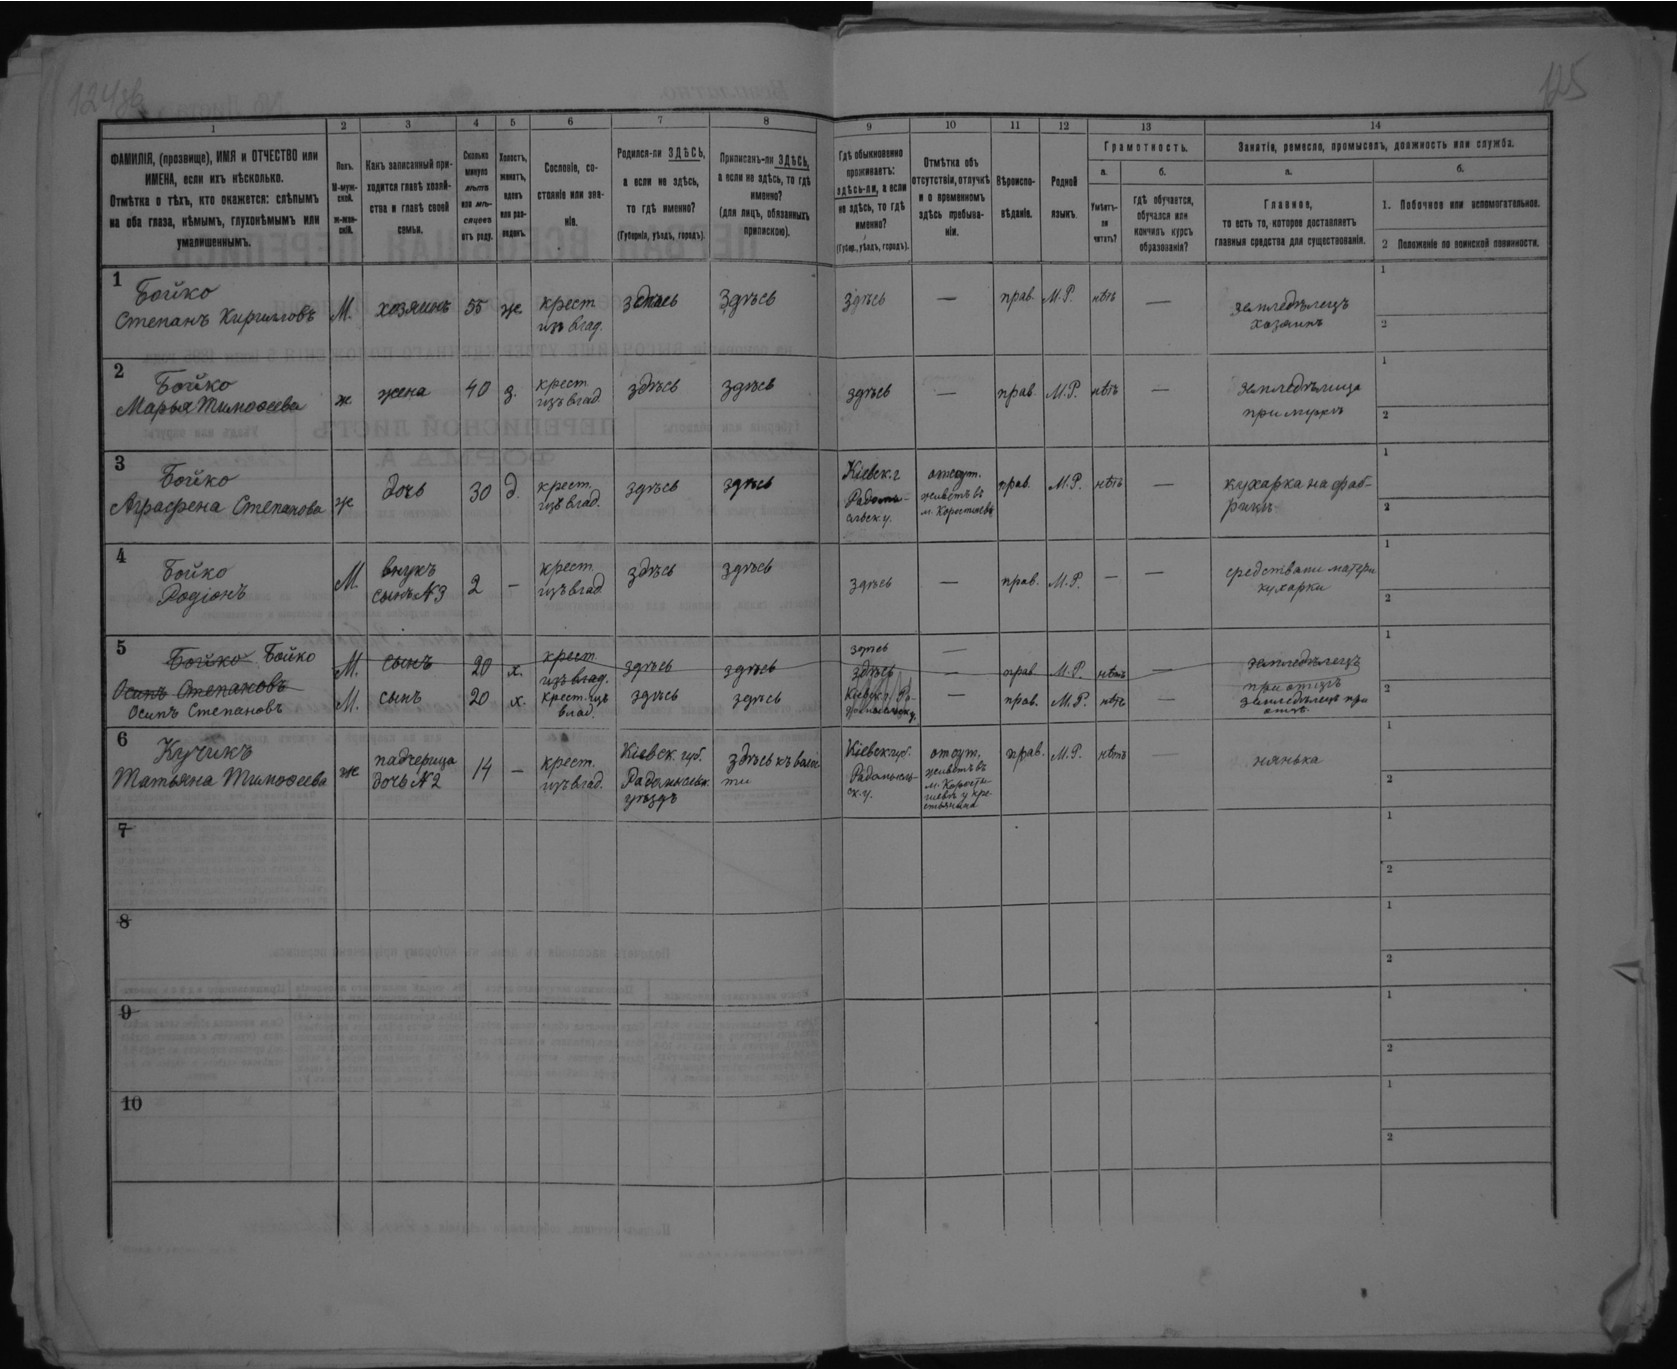 124об
125
1
2
3
4
5
6
7
8
9
10
11
12
13
14
ФАМИЛІЯ, (прозвище), ИМЯ и ОТЧЕСТВО или
ИМЕНА, если ихъ нѣсколько.
Отмѣтка о тѣхъ, кто окажется: слѣпымъ
на оба глаза, нѣмымъ, глухонѣмымъ или
умалишеннымъ.
Полъ.
М-муж-
ской.
Ж-жен-
скій.
Какъ записанный при-
ходится главѣ хозяй-
ства и главѣ своей
семьи.
Сколько
минуло
лѣтъ
или мѣ-
сяцевъ
отъ роду.
Холостъ,
женатъ,
вдовъ
или раз-
веденъ.
Сословіе, со-
стояніе или зва-
ніе.
Родился-ли ЗДѢСЬ,
а если не здѣсь,
то гдѣ именно?
(Губернія, уѣздъ, городъ).
Приписанъ-ли ЗДѢСЬ,
а если не здѣсь, то гдѣ
именно?
(для лицъ, обязанныхъ
припискою).
Гдѣ обыкновенно
проживаетъ:
здѣсь-ли, а если
не здѣсь, то гдѣ
именно?
(Губер., уѣздъ, городъ).
Отмѣтка объ
отсутствіи, отлучкѣ
и о временномъ
здѣсь пребыва-
ніи.
Вѣроиспо-
вѣданіе.
Родной
языкъ.
Грамотность.
а.
Умѣетъ-
ли
читать?
б.
Гдѣ обучается,
обучался или
кончилъ курсъ
образованія?
Занятіе, ремесло, промыселъ, должность или служба.
а.
Главное,
то есть то, которое доставляетъ
главныя средства для существованія.
б.
1. Побочное или вспомогательное.
2 Положеніе по воинской повинности.
1
Бойко
Степанъ Кирилловъ
М.
хозяинъ
55
ж
крест.
изъ влад.
здѣсь
здѣсь
здѣсь
—
прав.
М.Р.
нѣтъ
—
земледѣлецъ
хозяинъ
1
2
2
Бойко
Марья Тимофеева
ж
жена
40
з.
крест.
изъ влад.
здѣсь
здѣсь
здѣсь
—
прав.
М.Р.
нѣтъ
—
земледѣлица
при мужѣ
1
2
3
Бойко
Аграфена Степанова
ж
дочь
30
д.
крест.
изъ влад.
здѣсь
здѣсь
Кіевск.г
Радомы-
сльск.у.
отсут.
живетъ въ
м. Коростышевѣ
прав.
М.Р.
нѣтъ
—
кухарка на фаб-
рикѣ
1
2
4
Бойко
Родіонъ
М.
внукъ
сынъ №3
2
—
крест.
изъ влад
здѣсь
здѣсь
здѣсь
—
прав.
М.Р.
—
—
средствами матери
кухарки
1
2
5
Бойко Бойко
Осипъ Степановъ
М.
сынъ
20
х.
крест.
изъ влад.
здѣсь
здѣсь
здѣсь
здѣсь
—
—
прав
М.Р.
нѣтъ
—
земледѣлецъ
при отцѣ
Осипъ Степановъ
М.
сынъ
20
х.
крест. изъ
влад.
здѣсь
здѣсь
Кіевск.г. Ра-
—
прав.
М.Р.
нѣтъ
земледѣлецъ при
отцѣ
1
2
6
Кучикъ
Татьяна Тимофеева
ж
падчерица
дочь №2
14
—
крест.
изъ влад.
Кіевск. губ.
Радомысльск.
уѣздъ
здѣсь къ волос
ти
Кіевск.губ.
Радомысль-
ск.у.
отсут.
живетъ въ
м. Корост
ышевѣ у кре-
стьянина
прав.
М.Р.
нѣтъ
—
нянька
1
2
7
1
2
8
1
2
9
1
2
10
1
2